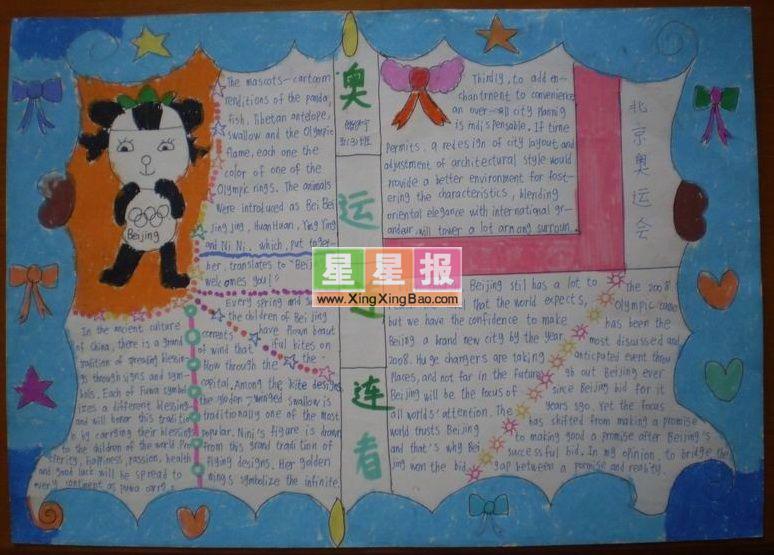 The mascots—cartoon
renditions of the panda,
fish, Tibetan antelope,
swallow and the Olympic
flame, each one the
color of one of the
Olympic rings. The animals
were introduced as Bei Bei
Jing jing, Huan Huan, Ying Ying
and Ni Ni, which, put toge-
her, translates to "Bei
welcomes you!"
Every spring and
the children of Beijing
have flown beaut
currents
of wind that
iful kites on
blow through the
the
capital. Among the kite designs,
the golden-winged swallow is
traditionally one of the most
popular. Nini's figure is drawn
from this grand tradition of
flying designs. Her golden
wings symbolize the infinite
Beijing
In the ancient culture
of China, there is a grand
tradition of spreading blessin
gs through signs and sym-
bols. Each of Fuwa symbol
izes a different blessing
and will honor this tradition
by carrying their blessing
to the children of the world.
happiness, passion, health
and good luck will be spread to
every continent as
奥
运
连
者
班
Thirdly, to add en-
chantment to convenience
an over-all city planning
is indispensable. If time
permits, a redesign of city layout and
adjustment of architectural style would
provide a better environment for fost-
ering the characteristics, blending
oriental elegance with international gr-
andeur will tower a lot among surroun
北京奥运会
星星报
www.XingXingBao.com
Beijing stil has a lot to
that the world expects,
but we have the confidence to make
Beijing a brand new city by the year
2008. Huge changers are taking
places, and not far in the future
Beijing will be the focus of
all world's attention. The
world trusts Beijing
and that's why Bei
jing won the bid.
the 2008
Olympic
has been the
most discussed and
anticipated event throu
gh out Beijing ever
since Beijing bid for it
years ago. Yet the focus
has shifted from making a promise
to making good a promise after Beijing's
successful bid. In my opinion, to bridge the
gap between a promise and reality.